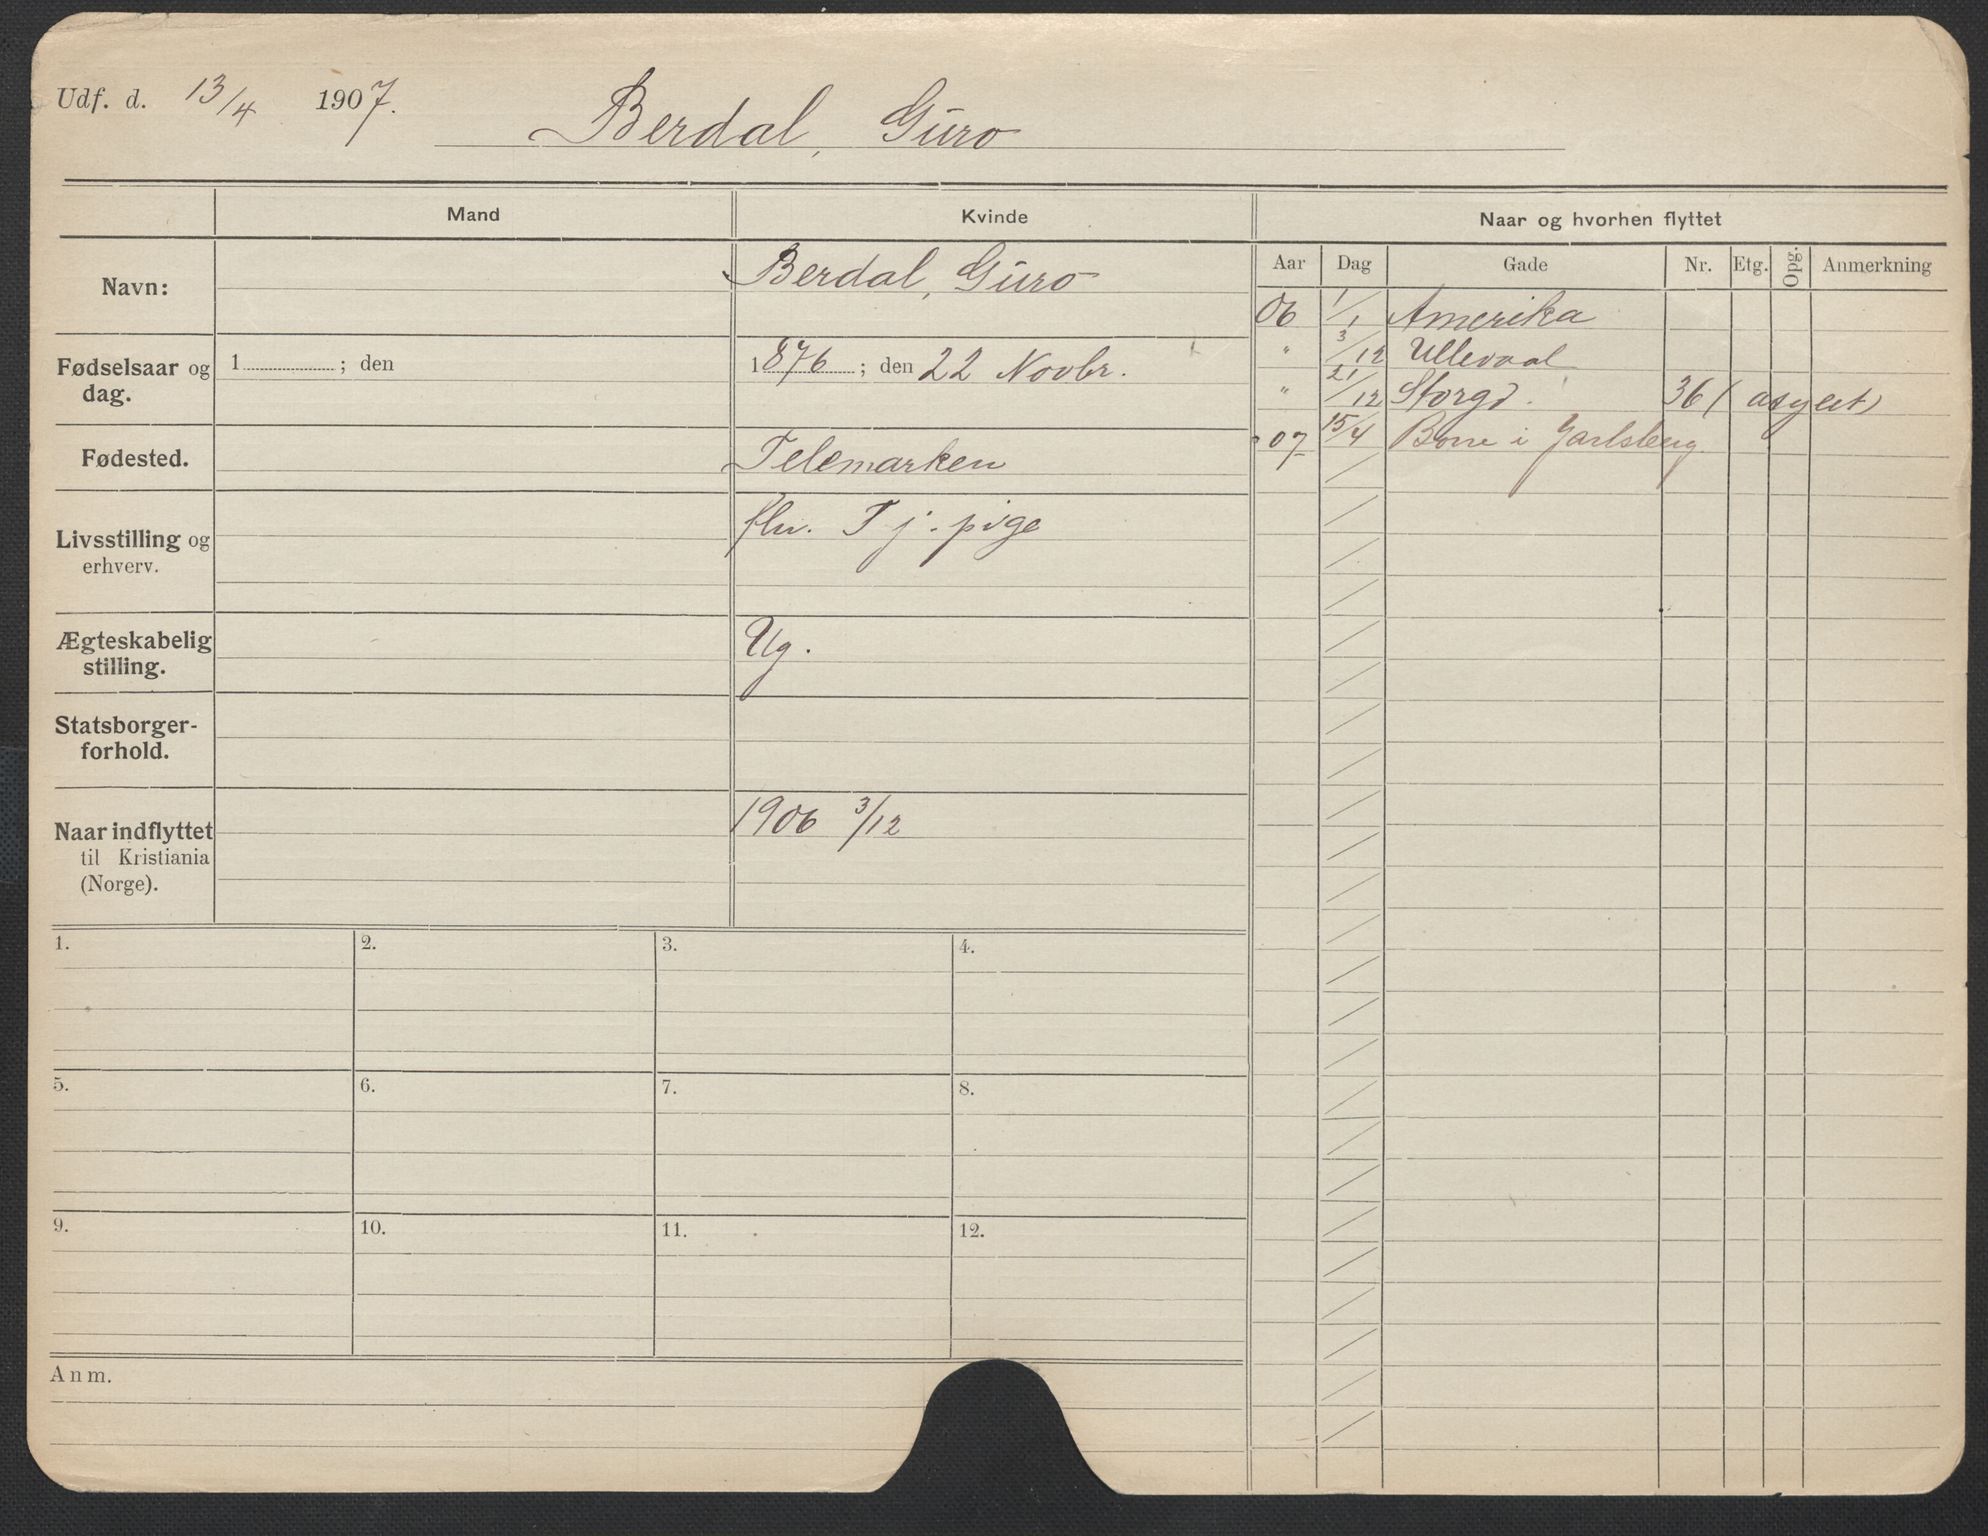 Udf. d. 13/4 1907. Berdal, Guro
Mand Kvinde Naar og hvorhen flyttet
Navn: Berdal, Guro
Fødselsaar og dag. 1 ; den 1876 ; den 22 Novbr.
Fødested. Telemarken
Livsstilling og erhverv. fhv. Tj. pige
Ægteskabelig stilling. Ug.
Statsborger-forhold.
Naar indflyttet til Kristiania (Norge). 1906 3/12
Aar Dag Gade Nr. Etg. Opg. Anmerkning
06 1/1 Amerika
" 3/12 Ullevaal
" 21/12 Storgd. 36 (asylet)
07 15/4 Borre i Jarlsberg
1. 2. 3. 4.
5. 6. 7. 8.
9. 10. 11. 12.
Anm.